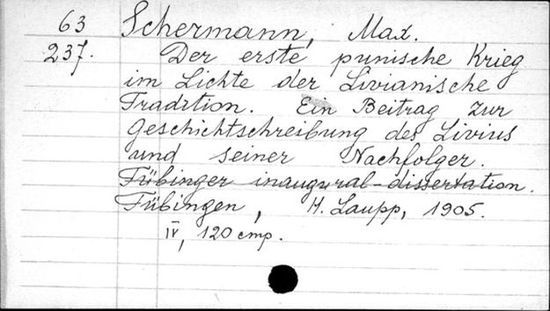 63 Schermann, Max.
237. Der erste punische Krieg
im Lichte der Livianische
Tradition. Ein Beitrag zur
Geschichtschreibung des Livius
und seiner Nachfolger.
Tübinger inaugural-dissertation.
Tübingen, H. Laupp, 1905.
IV, 120 стр.